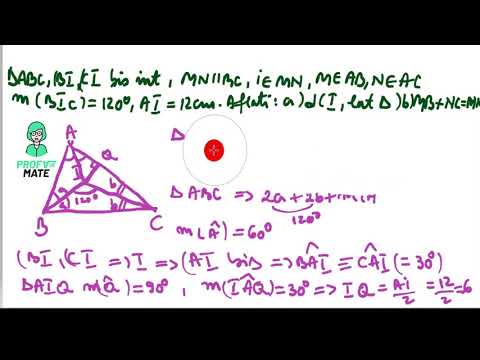 ΔABC, [BI,[CI bis int, MN||BC, i∈MN, M∈AB, N∈AC
m(BÎC)=120°, AI=12cm. Aflati: a) d(I, lat Δ) b) MB+NC=MN
A
Q
I
PROFA DE
MATE
a
a
120°
b
b
B
C
Δ
ΔABC => 2a+2b+m(A
120°
m(Â)=60°
[BI,[CI => I => [AI bis => BÂI ≡ CÂI (=30°)
ΔAIQ m(Q̂)=90°, m(IÂQ)=30° => IQ = AI/2 = 12/2 = 6